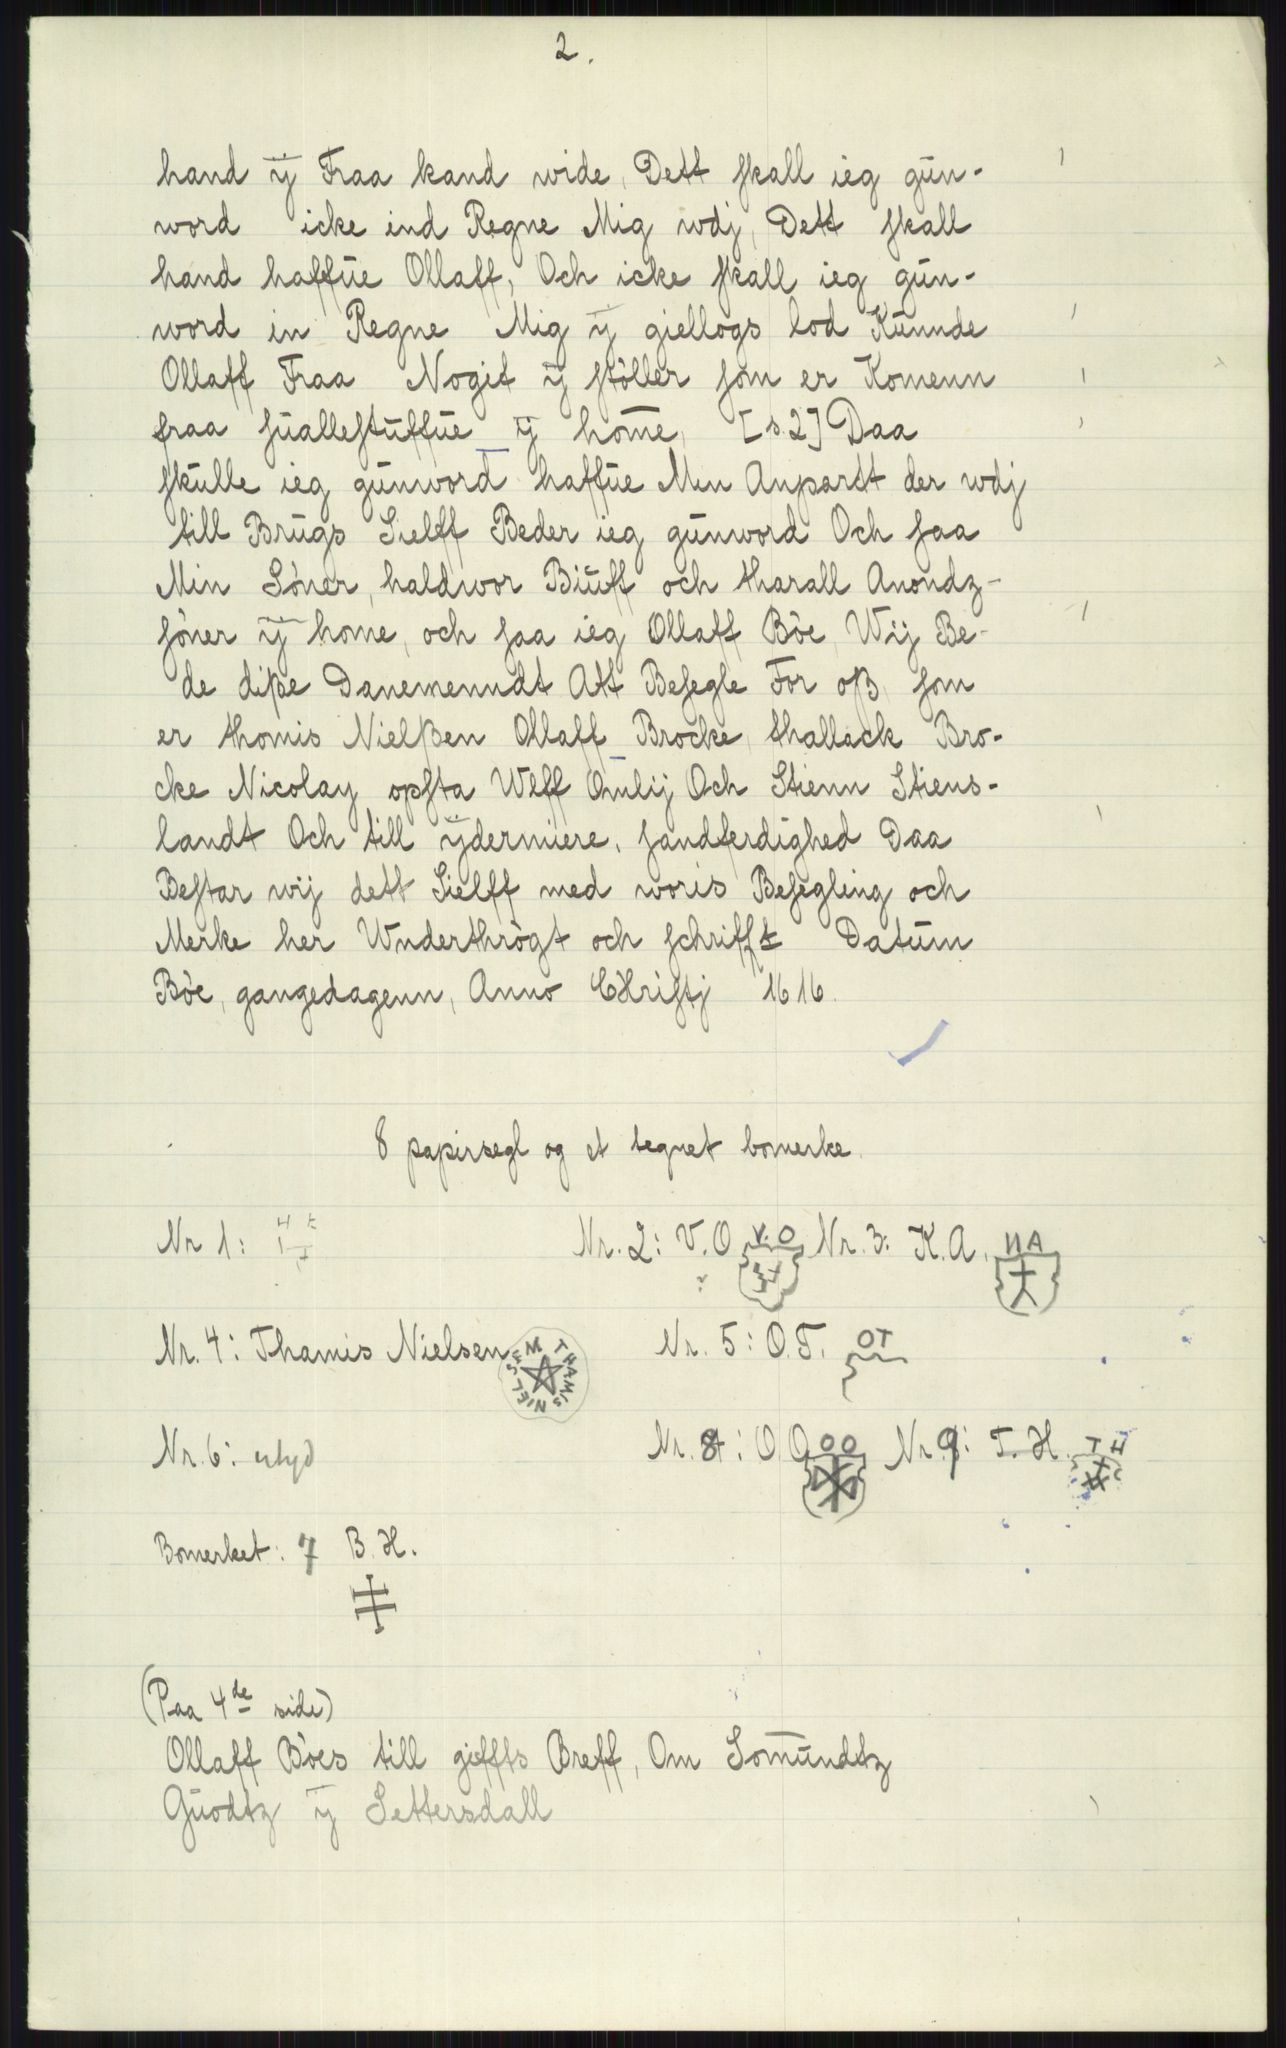 2.
hand ÿ Fraa kand wide, Dett skall ieg gun-
word icke ind Regne Mig wdj, Dett skall
hand haffue Ollaff, Och icke skall ieg gun-
word in Regne Mig ÿ giellogs lod Kunnde
Ollaff Fraa Nogit ÿ støller som er Komenn
fraa suallestuffue ÿ home, [s.2] Daa
skulle ieg gunword haffue Min Anpartt der wdj
till Brugs Sielff Beder ieg gunword Och saa
Min Sòner, haldwor Biuff och tharall Anondz-
sòner ÿ home, och saa ieg Ollaff Bòe, Wij Be-
de diße Danemenndt Att Besegle For oß, som
er thomis Nielßen Ollaff Brocke, thallack Bro-
cke Nicolay opsta Wlff Omlij Och Stienn Stiens-
landt Och till ÿdermiere, sandferdighed Daa
Bestar wij dett Sielff med woris Besegling och
Merke her Wnderthrògt och schrifft Datum
Bòe, gangedagenn, Anno Christj 1616.
8 papirsegl og et tegnet bomerke.
Nr 1:
Nr. 2: V.O. V.O Nr. 3: K.A. HA
Nr. 4: Thamis Nielsen THAMIS NIELSEM Nr. 5: O.T. OT
Nr. 6: utyd Nr. 8: O.O. OO Nr. 9: T.H. TH
Bomerket: 7 B.H.
(Paa 4de side)
Ollaff Bòes till giffts Breff, Om Somundtz
Guodtz ÿ Settersdall